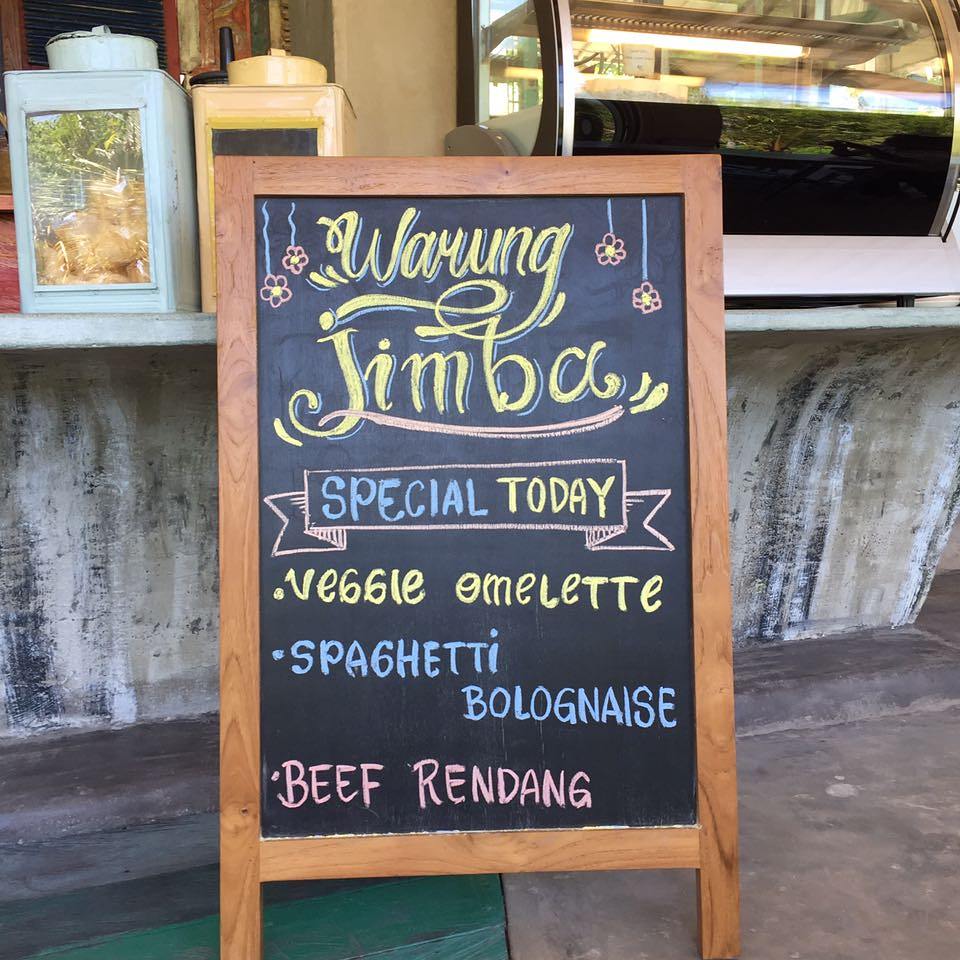 Warung
Jimba
SPECIAL TODAY
•VEGGIE OMELETTE
•SPAGHETTI
BOLOGNAISE
•BEEF RENDANG